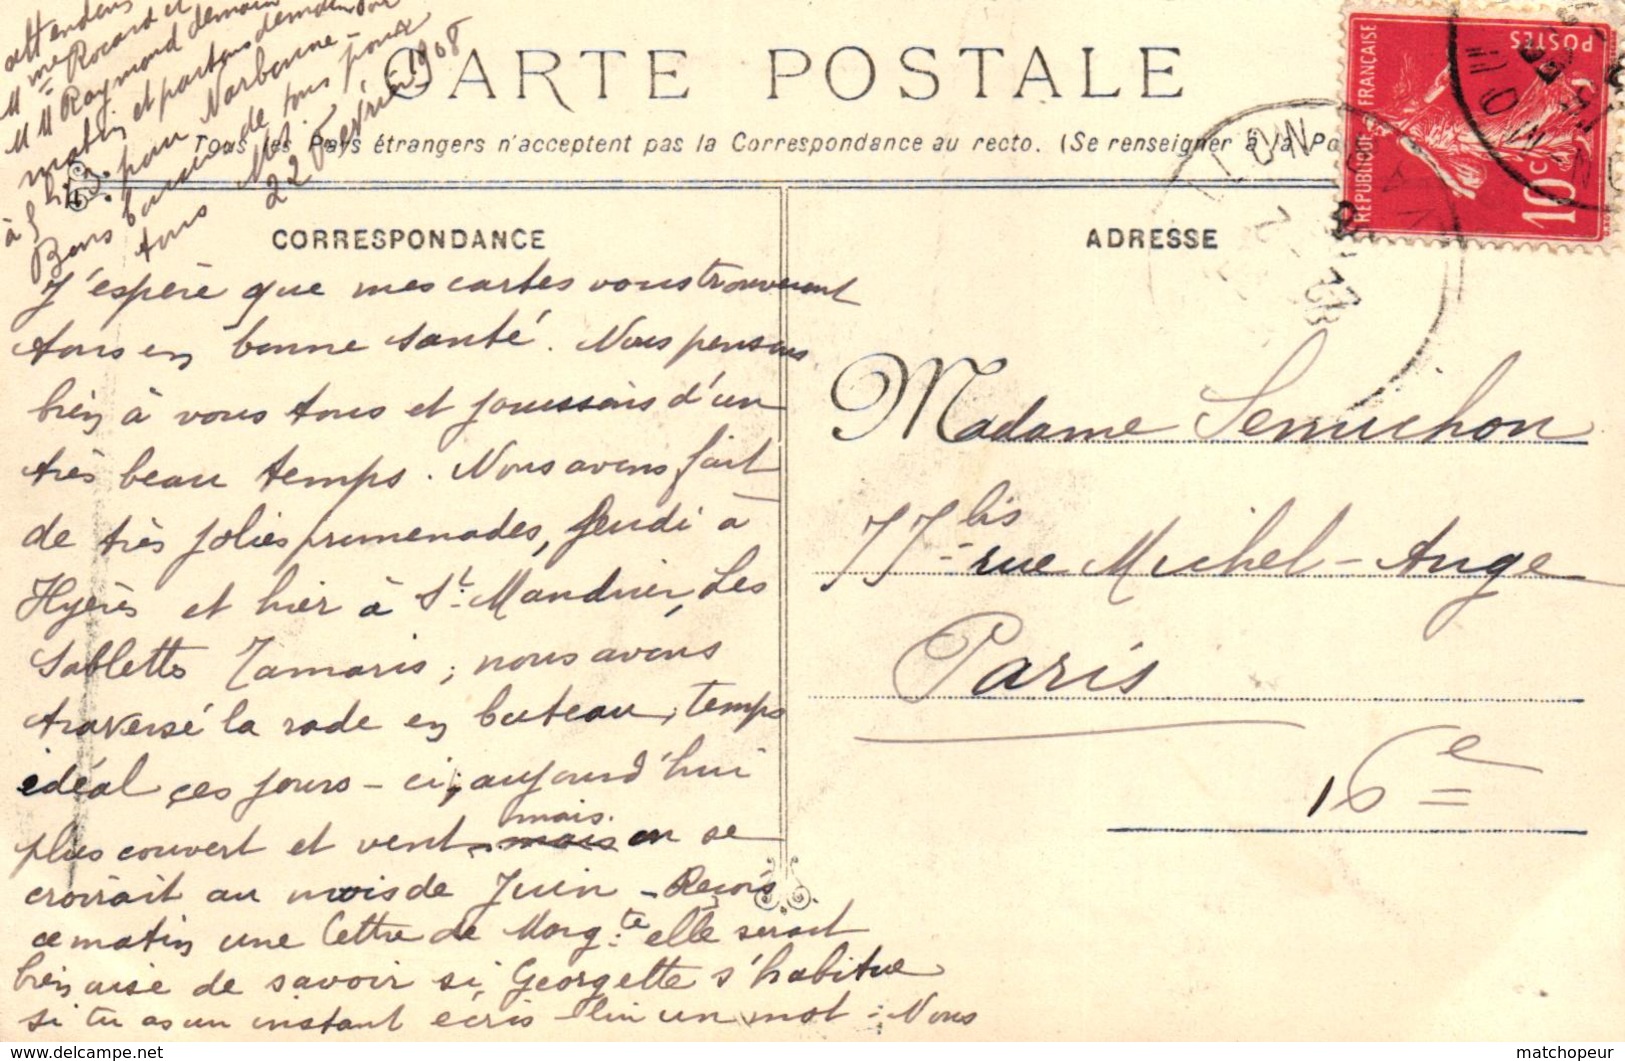 CARTE POSTALE
Tous les Pays étrangers n'acceptent pas la Correspondance au recto. (Se renseigner à la Po
CORRESPONDANCE
J'espère que mes cartes vous trouveront
tous en bonne santé. Nous pensons
bien à vous tous et jouissons d'un
très beau temps. Nous avons fait
de très jolies promenades, Jeudi à
Hyères et hier à St. Mandrier, Les
Sablettes Tamaris; nous avons
traversé la rade en bateau, temps
idéal ces jours-ci, aujourd'hui
plus couvert et vent mais on se
croirait au mois de Juin - Reçois
ce matin une lettre de Margte. elle serait
bien aise de savoir si Georgette s'habitue
si tu as un instant écris lui un mot. Nous
attendons
Mme Rocard et
M Raymond demain
matin et partons demain soir
à 5h pour Narbonne -
Bons baisers de tous pour
tous
22 Février 1908
ADRESSE
Madame Semichon
77 bis rue Michel-Ange
Paris
16e
RÉPUBLIQUE FRANÇAISE
POSTES
10c
matchopeur